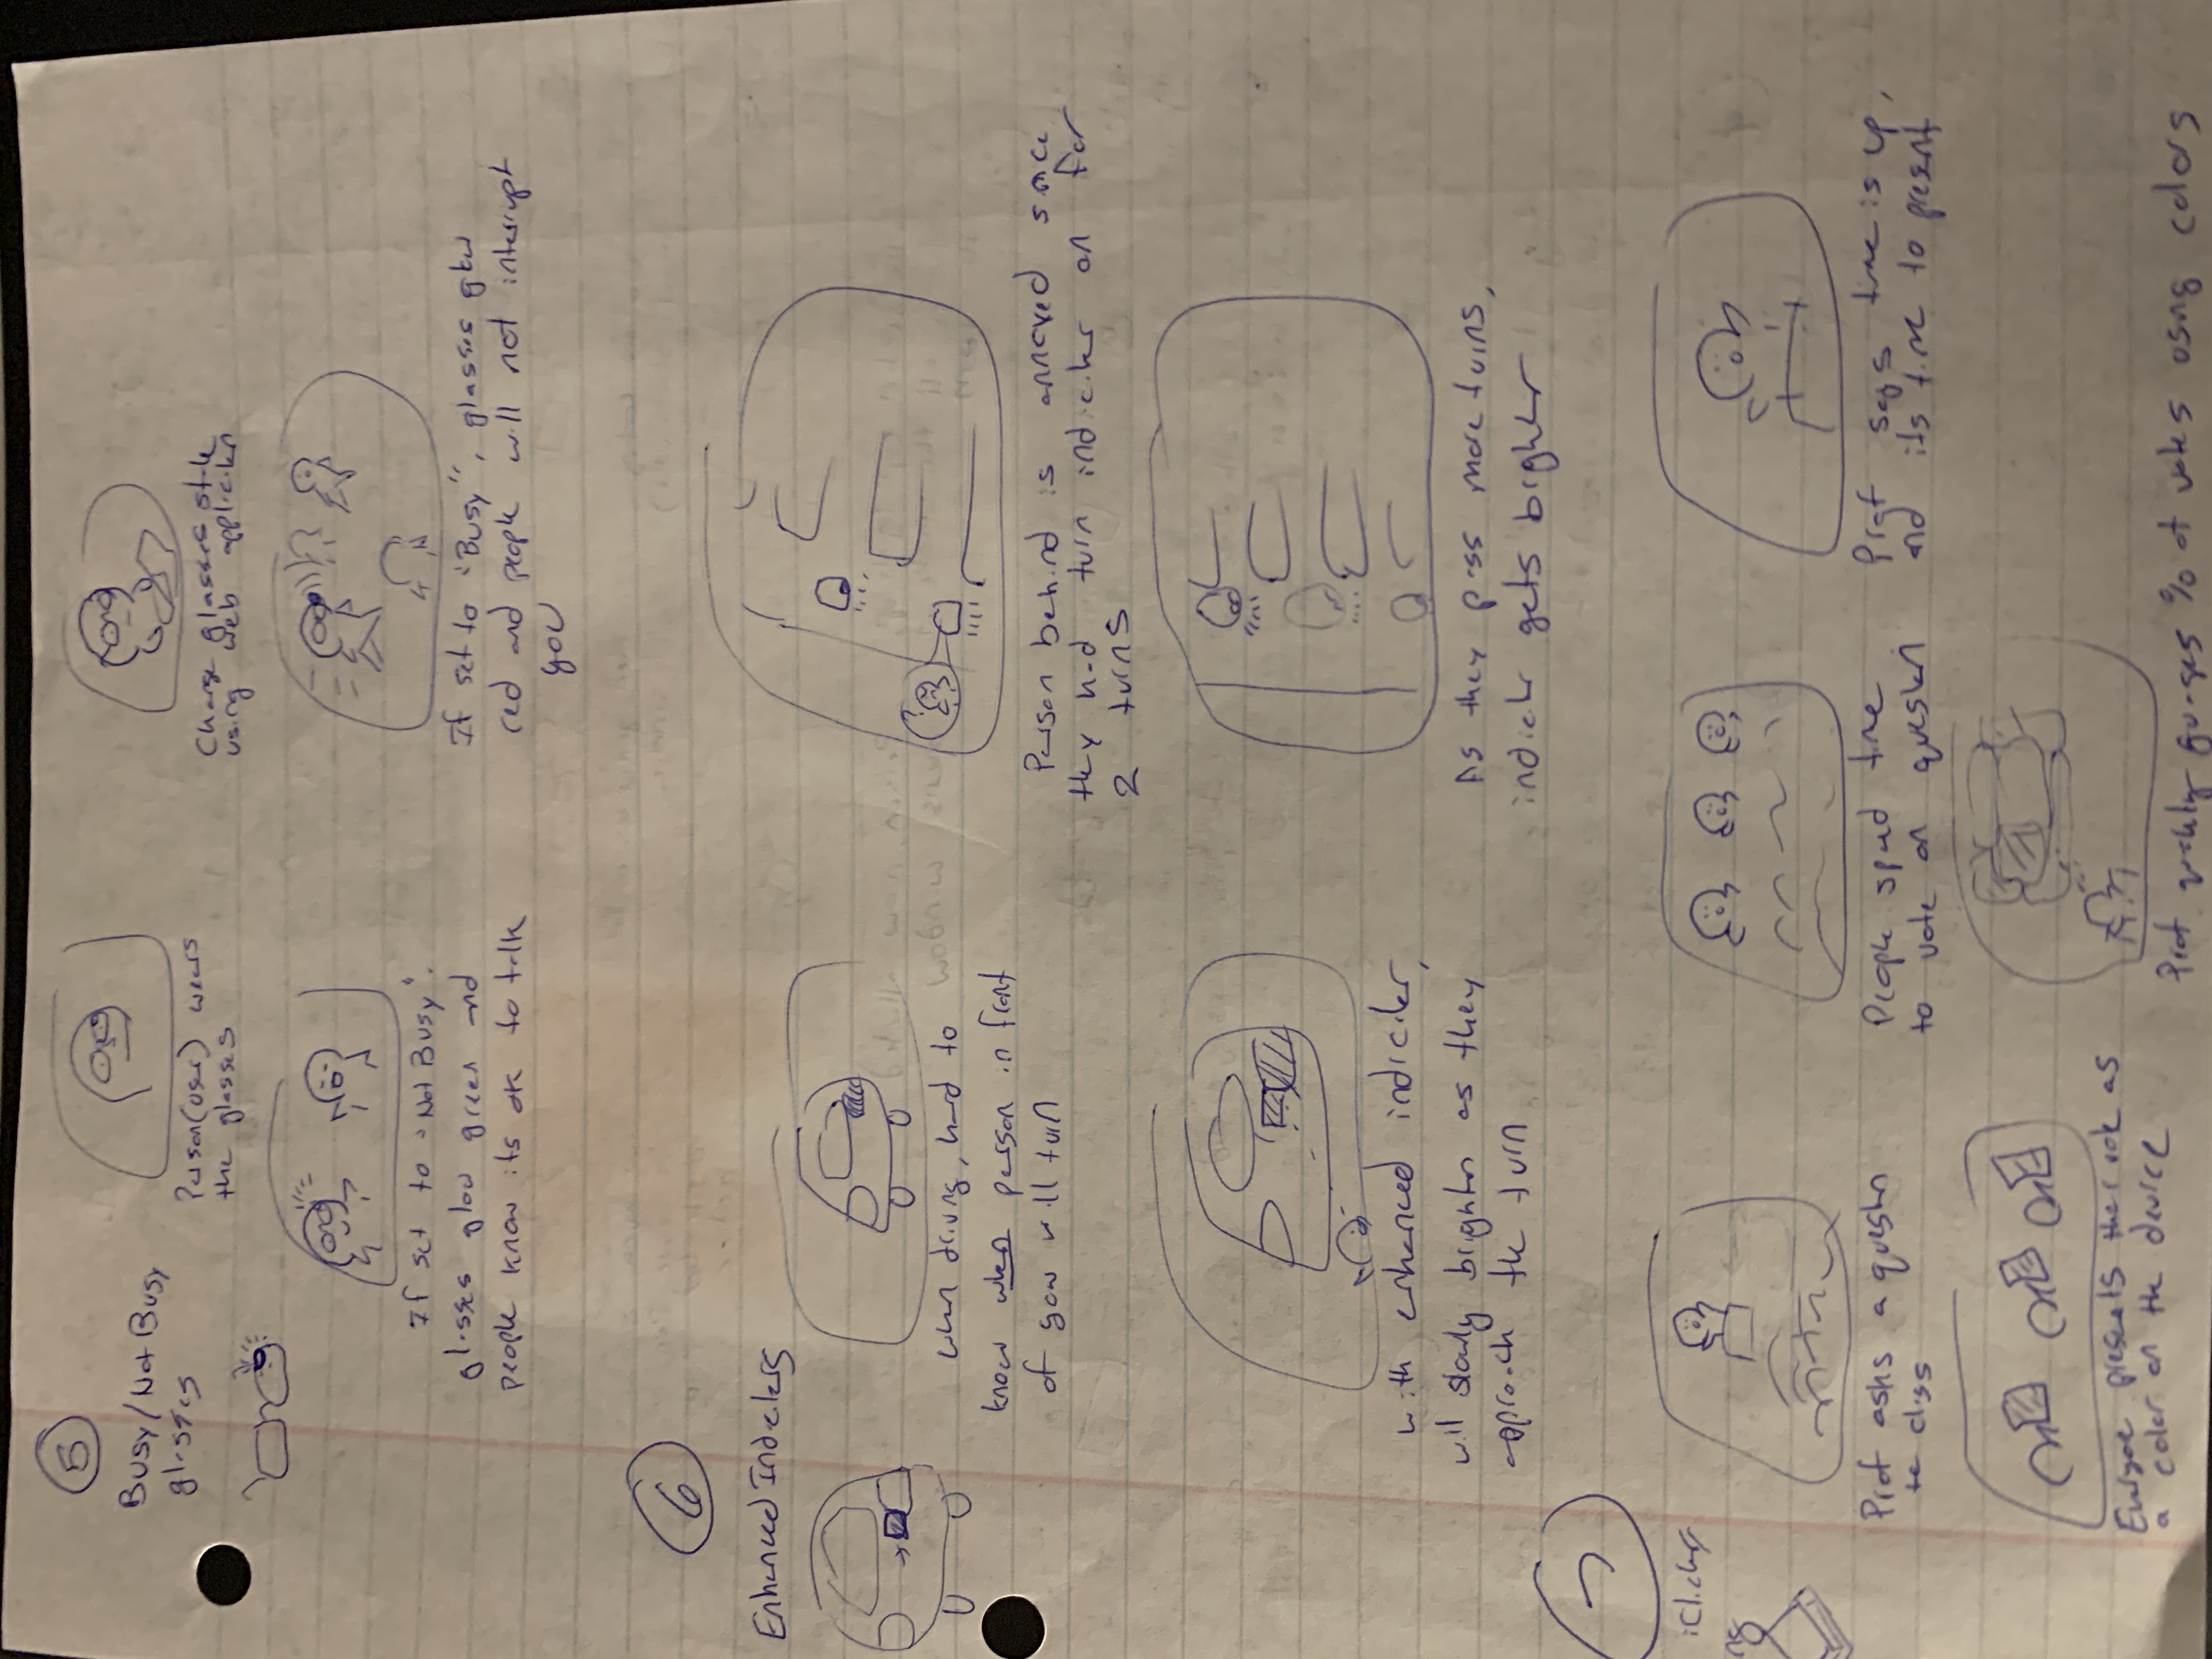 5
Busy/Not Busy
glasses
Person(user) wears
the glasses
Change glasses state
using web application
If set to "Not Busy".
glasses glow green and
people know its ok to talk
If set to "Busy", glasses glow
red and people will not interrupt
you
6
Enhanced Indicators
when driving, hard to
know when person in front
of you will turn
Person behind is annoyed since
they had turn indicator on for
2 turns
with enhanced indicator,
will slowly brighten as they
approach the turn
As they pass more turns,
indicator gets brighter
7
iClickers
Prof asks a question
to class
People spend time
to vote on question
Prof says time is up,
and its time to present
Everyone presents their vote as
a color on the device
Prof quickly guages % of votes using colors